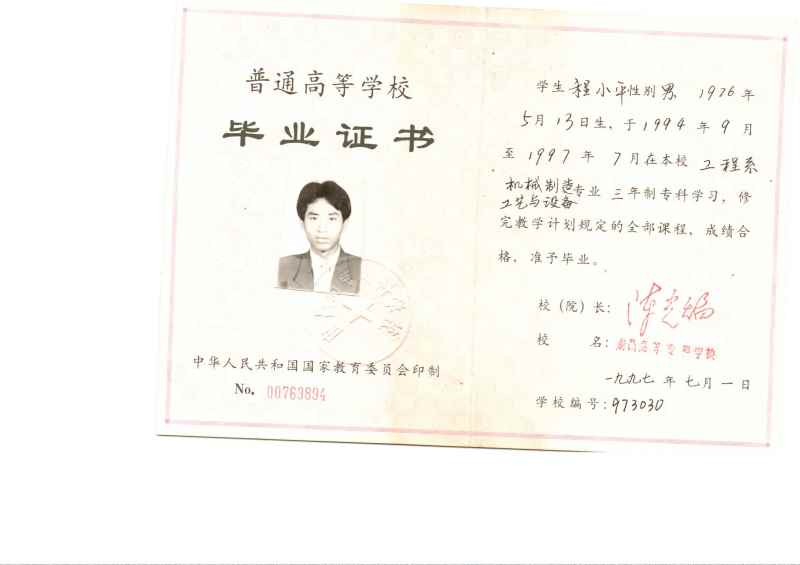 普通高等学校
毕业证书
中华人民共和国国家教育委员会印制
No. 00763894
学生 程小平 性别 男 1976年
5月13日生，于1994年9月
至1997年7月在本校 工程系
机械制造工艺与设备专业 三年制专科学习，修
完教学计划规定的全部课程，成绩合
格，准予毕业。
校（院）长：
校 名：
一九九七年七月一日
学校编号：973030